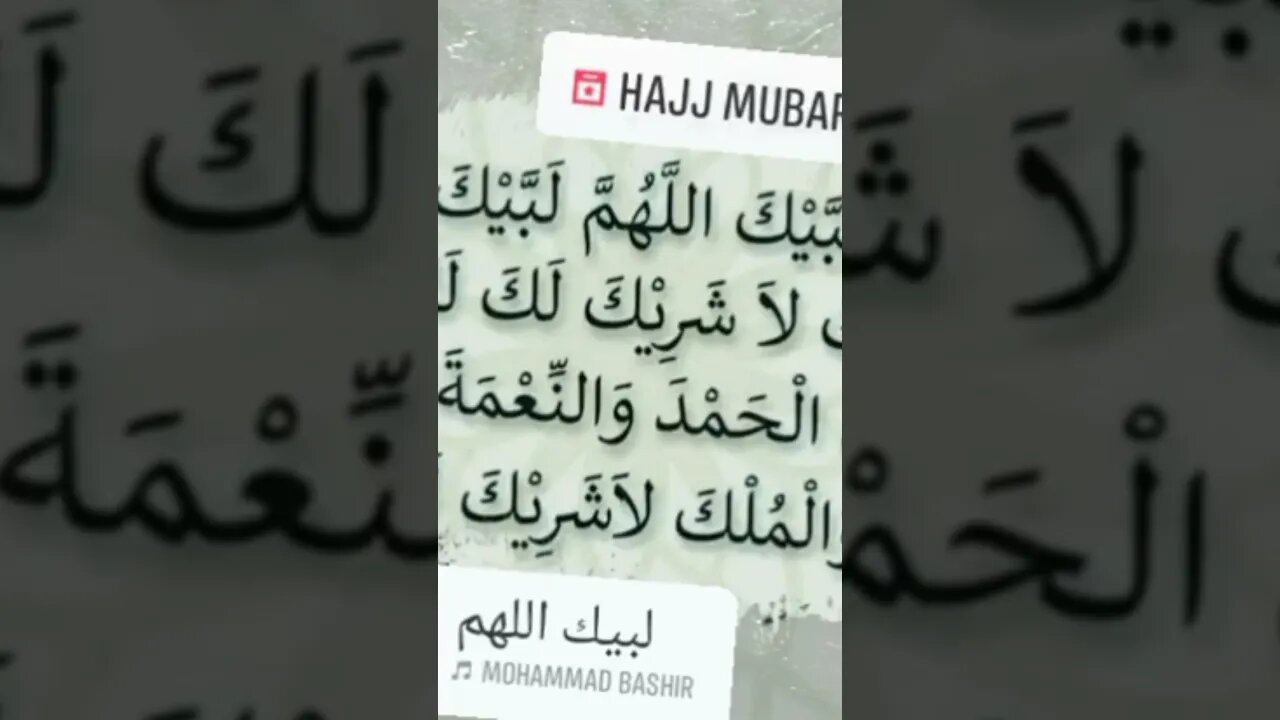 HAJJ MUBAR
لَبَّيْكَ اللَّهُمَّ لَبَّيْكَ
لاَ شَرِيْكَ لَكَ
الْحَمْدَ وَالنِّعْمَةَ
وَالْمُلْكَ لاَشَرِيْكَ
لبيك اللهم
MOHAMMAD BASHIR